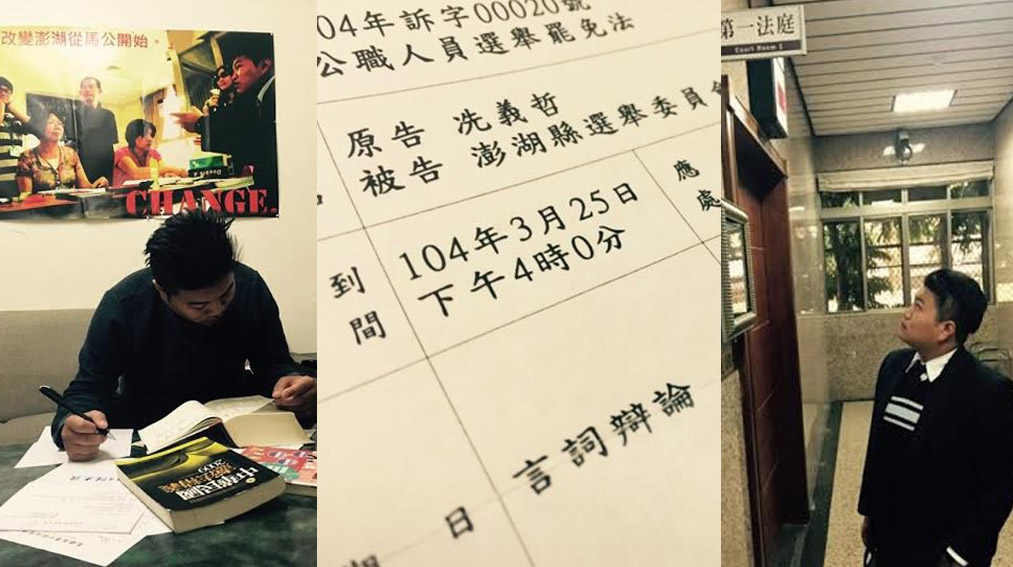 改變澎湖從馬公開始。
CHANGE.
104年訴字00020號
公職人員選舉罷免法
原告 冼義哲
被告 澎湖縣選舉委員會
到
間
104年3月25日
下午4時0分
應
處
言詞辯論
日
期
第一法庭
Court Room 1